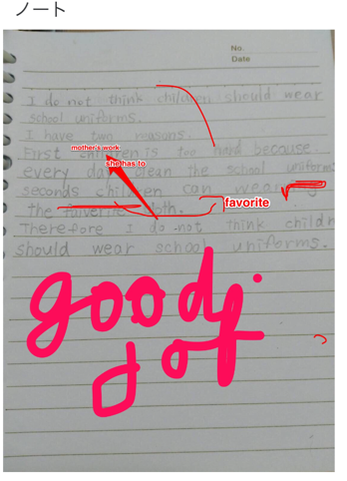 ノート
No.
Date
I do not think children should wear
school uniforms.
I have two reasons.
mother's work
First children is too hard because
she has to
every day clean the school uniforms
seconds children can wear
favorite
the cloth.
Therefore I do not think childr
should wear school uniforms.
good
job